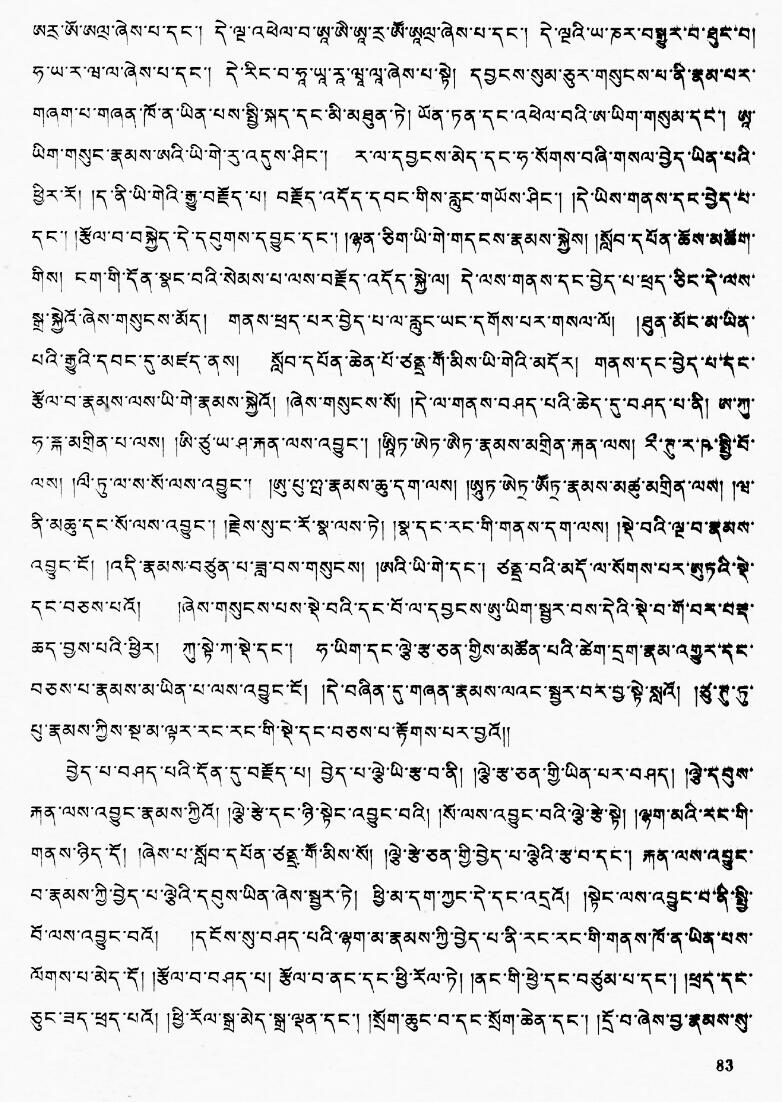 ཨརྲ་ཨོ་ཨལླ་ཞེས་པ་དང་། དེ་ལྔ་འཕེལ་བ་ཨཱ་ཨཻ་ཨཱ་རྲ་ཨཽ་ཨཱལླ་ཞེས་པ་དང་། དེ་ལྔའི་ཡ་ཎར་བསྒྱུར་བ་ཐུང་བ།
ཧ་ཡ་ར་ཝ་ལ་ཞེས་པ་དང་། དེ་རིང་བ་ཧཱ་ཡཱ་རཱ་ཝཱ་ལཱ་ཞེས་པ་སྟེ། དབྱངས་སུམ་ཅུར་གསུངས་པ་ནི་རྣམ་པར་
གཞག་པ་གཞན་ཁོ་ན་ཡིན་པས་སྤྱི་སྐད་དང་མི་མཐུན་ཏེ། ཡོན་ཏན་དང་འཕེལ་བའི་ཨ་ཡིག་གསུམ་དང་། ཨཱ་
ཡིག་གསུང་རྣམས་ཨའི་ཡི་གེ་རུ་འདུས་ཤིང་། ར་ལ་དབྱངས་མེད་དང་ཧ་སོགས་བཞི་གསལ་བྱེད་ཡིན་པའི་
ཕྱིར་རོ། །ད་ནི་ཡི་གེའི་རྒྱུ་བརྗོད་པ། བརྗོད་འདོད་དབང་གིས་རླུང་གཡོས་ཤིང་། །དེ་ཡིས་གནས་དང་བྱེད་པ་
དང་། །རྩོལ་བ་བསྐྱེད་དེ་དབུགས་དབྱུང་དང་། །ལྷན་ཅིག་ཡི་གེ་གདངས་རྣམས་སྐྱེས། །སློབ་དཔོན་ཆོས་མཆོག་
གིས། ངག་གི་དོན་སྣང་བའི་སེམས་པ་ལས་བརྗོད་འདོད་སྐྱེ་ལ། དེ་ལས་གནས་དང་བྱེད་པ་ཕྲད་ཅིང་དེ་ལས་
སྒྲ་སྐྱེའོ་ཞེས་གསུངས་མོད། གནས་ཕྲད་པར་བྱེད་པ་ལ་རླུང་ཡང་དགོས་པར་གསལ་ལོ། །ཐུན་མོང་མ་ཡིན་
པའི་རྒྱུའི་དབང་དུ་མཛད་ནས། སློབ་དཔོན་ཆེན་པོ་ཙནྡྲ་གོ་མིས་ཡི་གེའི་མདོར། གནས་དང་བྱེད་པ་དང་
རྩོལ་བ་རྣམས་ལས་ཡི་གེ་རྣམས་སྐྱེའོ། །ཞེས་གསུངས་སོ། །དེ་ལ་གནས་བཤད་པའི་ཆེད་དུ་བཤད་པ་ནི། ཨ་ཀུ་
ལས། །ལི་ཏུ་ལ་ས་སོ་ལས་འབྱུང་། །ཨུ་པུ་ཨྤ་རྣམས་ཆུ་དག་ལས། །ཨཱུཏ་ཨེཏ་ཨཽཏ་རྣམས་མཚུ་མགྲིན་ལས། །ཝ་
ནི་མཆུ་དང་སོ་ལས་འབྱུང་། །རྗེས་སུ་ང་རོ་སྣ་ལས་ཏེ། །སྣ་དང་རང་གི་གནས་དག་ལས། །སྡེ་བའི་ལྔ་བ་རྣམས་
འབྱུང་ངོ། །འདི་རྣམས་བཙུན་པ་ཟླ་བས་གསུངས། །ཨའི་ཡི་གེ་དང་། ཙནྡྲ་བའི་མདོ་ལ་སོགས་པར་ཨུཏའི་སྡེ་
དང་བཅས་པའོ། །ཞེས་གསུངས་པས་སྡེ་བའི་དང་པོ་ལ་དབྱངས་ཨུ་ཡིག་སྦྱར་བས་དེའི་སྡེ་བ་གོ་བར་བརྡ་
ཆད་བྱས་པའི་ཕྱིར། ཀུ་སྟེ་ཀ་སྡེ་དང་། ཧ་ཡིག་དང་ལྕེ་རྩ་ཅན་གྱིས་མཚོན་པའི་ཚེག་དྲག་རྣམ་འགྱུར་དང་
བཅས་པ་རྣམས་མ་ཡིན་པ་ལས་འབྱུང་ངོ། །དེ་བཞིན་དུ་གཞན་རྣམས་ལའང་སྦྱར་བར་བྱ་སྟེ་སླའོ། །ཙུ་ཊུ་ཏུ་
པུ་རྣམས་ཀྱིས་སྔ་མ་ལྟར་རང་རང་གི་སྡེ་དང་བཅས་པ་རྟོགས་པར་བྱའོ།།
བྱེད་པ་བཤད་པའི་དོན་དུ་བརྗོད་པ། བྱེད་པ་ལྕེ་ཡི་རྩ་བ་ནི། །ལྕེ་རྩ་ཅན་གྱི་ཡིན་པར་བཤད། །ལྕེ་དབུས་
རྐན་ལས་འབྱུང་རྣམས་ཀྱིའོ། །ལྕེ་རྩེ་དང་ཉེ་སྟེང་འབྱུང་བའི། །སོ་ལས་འབྱུང་བའི་ལྕེ་རྩེ་སྟེ། །ལྷག་མའི་རང་གི་
གནས་ཉིད་དོ། །ཞེས་པ་སློབ་དཔོན་ཙནྡྲ་གོ་མིས་སོ། །ལྕེ་རྩ་ཅན་གྱི་བྱེད་པ་ལྕེའི་རྩ་བ་དང་། རྐན་ལས་འབྱུང་
བ་རྣམས་ཀྱི་བྱེད་པ་ལྕེའི་དབུས་ཡིན་ཞེས་སྦྱར་ཏེ། ཕྱི་མ་དག་ཀྱང་དེ་དང་འདྲའོ། །སྟེང་ལས་འབྱུང་བ་ནི་སྤྱི་
བོ་ལས་འབྱུང་བའོ། །དངོས་སུ་བཤད་པའི་ལྷག་མ་རྣམས་ཀྱི་བྱེད་པ་ནི་རང་རང་གི་གནས་ཁོ་ན་ཡིན་པས་
ལོགས་པ་མེད་དོ། །རྩོལ་བ་བཤད་པ། རྩོལ་བ་ནང་དང་ཕྱི་རོལ་ཏེ། །ནང་གི་ཕྱེ་དང་བཙུམ་པ་དང་། །ཕྲད་དང་
ཅུང་ཟད་ཕྲད་པའོ། །ཕྱི་རོལ་སྒྲ་མེད་སྒྲ་ལྡན་དང་། །སྲོག་ཆུང་བ་དང་སྲོག་ཆེན་དང་། །དྲོ་བ་ཞེས་བྱ་རྣམས་སུ་
83